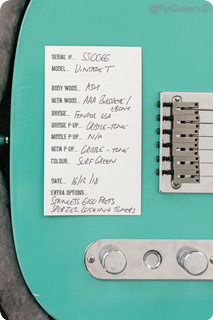 @ProGuitars.IE
SERIAL #... SS0066
MODEL... VINTAGE T
BODY WOOD... ASH
NECK WOOD... AAA BIRDSEYE /
EBONY
BRIDGE... FENDER USA
BRIDGE P UP... CRADLE-TONE
MIDDLE P UP... N/A
NECK P UP... CRADLE-TONE
COLOUR... SURF GREEN
DATE... 16/12/18
EXTRA OPTIONS...
STAINLESS 6100 FRETS
SPERZEL LOCKING TUNERS